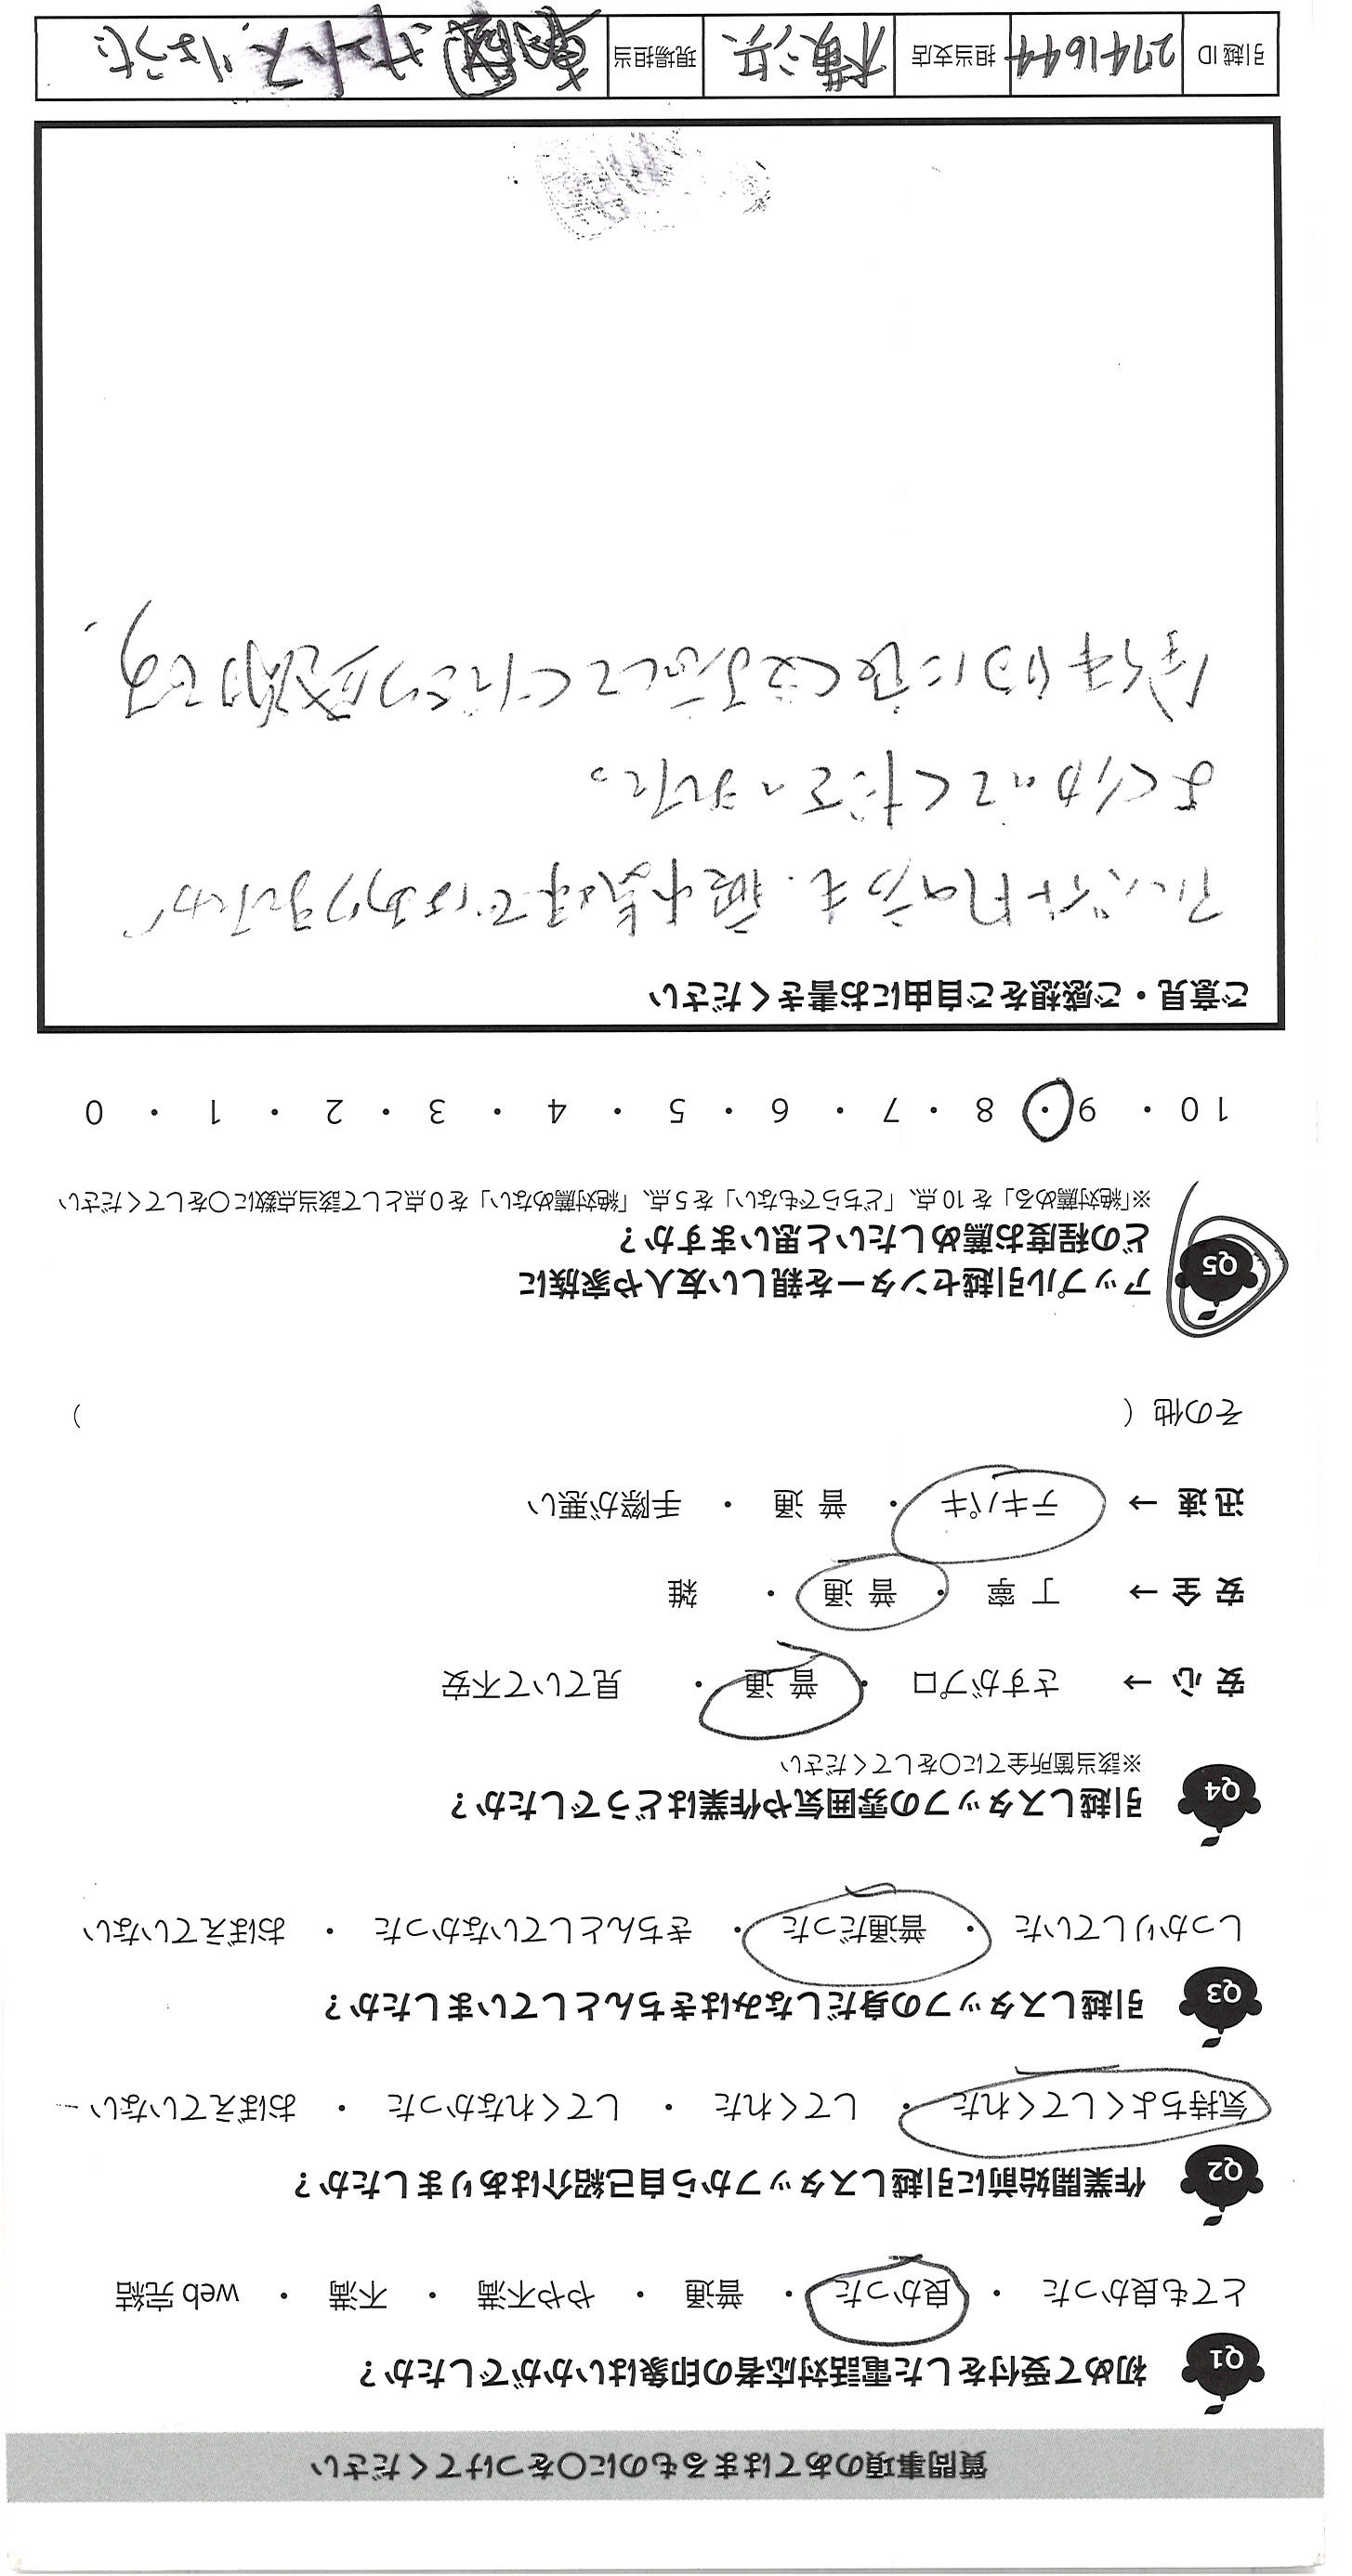 質問事項のあてはまるものに○をつけてください
Q1 初めて受付をした電話対応者の印象はいかがでしたか？
とても良かった ・ 良かった ・ 普通 ・ やや不満 ・ 不満 ・ web 完結
Q2 作業開始前に引越しスタッフから自己紹介はありましたか？
気持ちよくしてくれた ・ してくれた ・ してくれなかった ・ おぼえていない
Q3 引越しスタッフの身だしなみはきちんとしていましたか？
しっかりしていた ・ 普通だった ・ きちんとしていなかった ・ おぼえていない
Q4 引越しスタッフの雰囲気や作業はどうでしたか？
※該当箇所全てに○をしてください
安 心 → さすがプロ ・ 普 通 ・ 見ていて不安
安 全 → 丁 寧 ・ 普 通 ・ 雑
迅 速 → テキパキ ・ 普 通 ・ 手際が悪い
その他（ ）
Q5 アップル引越センターを親しい友人や家族に
どの程度お薦めしたいと思いますか？
※「絶対薦める」を 10 点、「どちらでもない」を 5 点、「絶対薦めない」を 0 点として該当点数に○をしてください
10 ・ 9 ・ 8 ・ 7 ・ 6 ・ 5 ・ 4 ・ 3 ・ 2 ・ 1 ・ 0
ご意見・ご感想をご自由にお書きください
アルバイトの方も、ではありましたが
よくやってくださいました。
全体的に良く対応してくださり感謝です。
引越 ID 2741644 担当支店 横浜 現場担当 サントス、りょうた